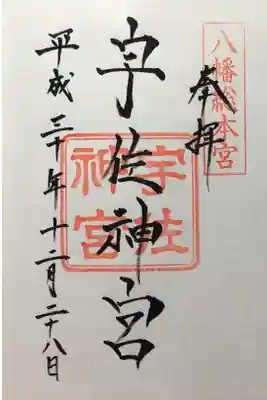 八幡総本宮
奉拝
宇佐神宮
宇佐神宮
平成三十年十二月二十八日